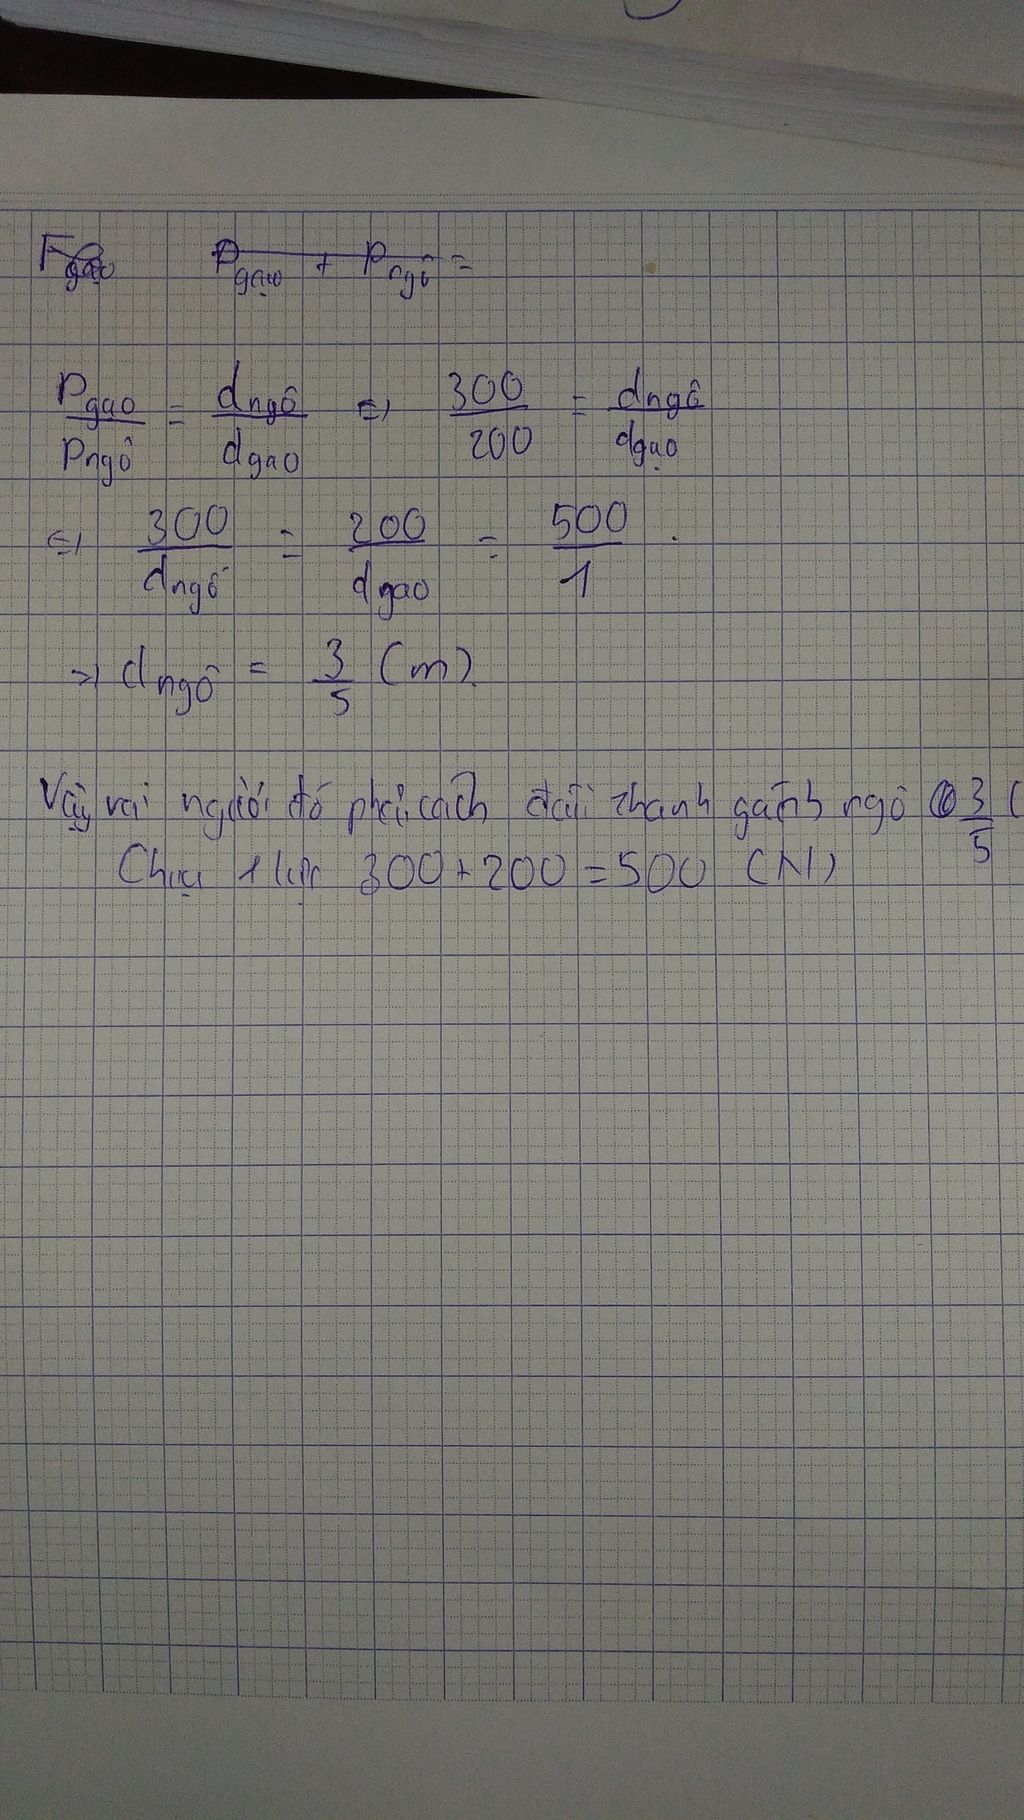 Fgạo Pgạo + Pngô =
Pgạo/Pngô = dngô/dgạo ⇔ 300/200 = dngô/dgạo
⇔ 300/dngô = 200/dgạo = 500/1 .
=> dngô = 3/5 (m).
Vậy vai người đó phải cách đầu thanh gánh ngô 3/5 (
Chịu 1 lực 300 + 200 = 500 (N)